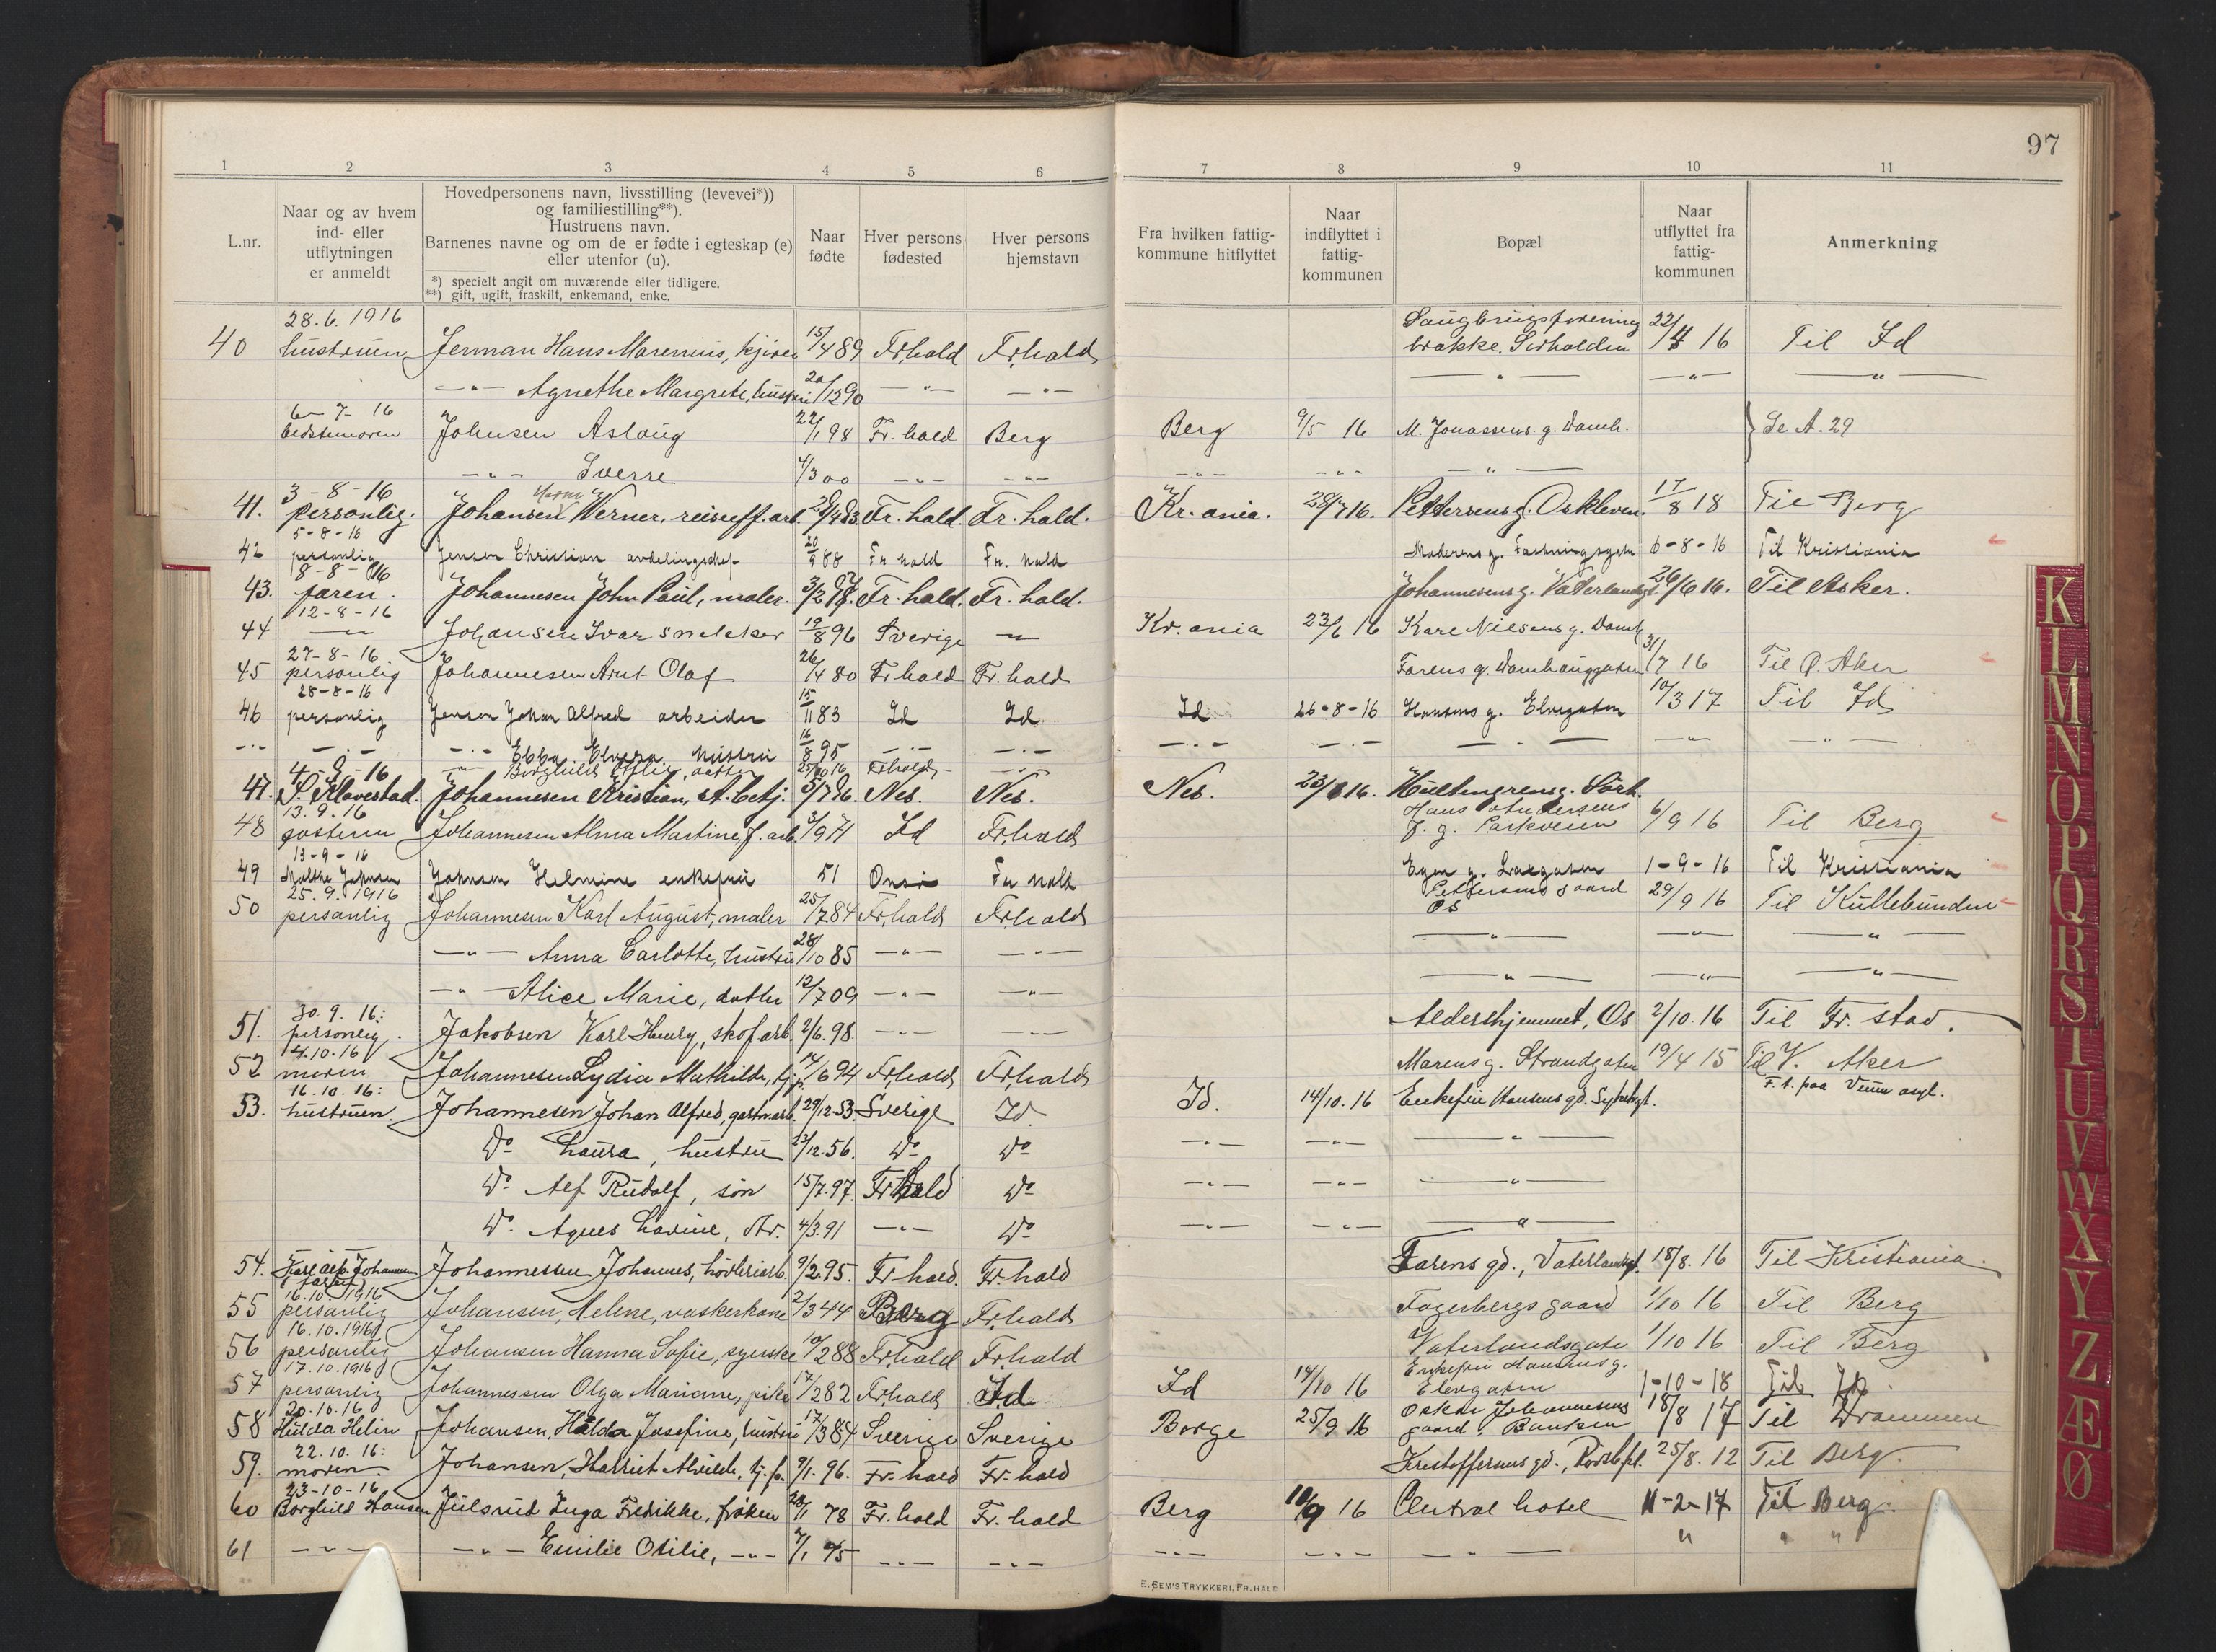 97
1 2 3 4 5 6 7 8 9 10 11
L.nr.
Naar og av hvem
ind- eller
utflytningen
er anmeldt
Hovedpersonens navn, livsstilling (levevei*))
og familiestilling**).
Hustruens navn.
Barnenes navne og om de er fødte i egteskap (e)
eller utenfor (u).
*) specielt angit om nuværende eller tidligere.
**) gift, ugift, fraskilt, enkemand, enke.
Naar
fødte
Hver persons
fødested
Hver persons
hjemstavn
Fra hvilken fattig-
kommune hitflyttet
Naar
indflyttet i
fattig-
kommunen
Bopæl
Naar
utflyttet fra
fattig-
kommunen
Anmerkning
28.6.1916 Saugbrugsforening
40 hustruen Jerman Hans Marenius, 15/4 89 Fr.hald Fr.hald brakke 22/4 16 Til Id
—„— Agnethe Margrete, hustru 20/12 90 —„— —„— —„— —„— —„—
6-7-16
bedstemoren Johnsen Aslaug 22/1 98 Fr. hald Berg Berg 9/5 16 M. Jonassens g. Damh. } Se A. 29
—„— Sverre 4/3 00 —„— —„— —„— —„— —„—
3-8-16
41. personlig. Johansen Werner, 83. Fr. hald. Fr. hald. Kr.ania. 28/7 16. Pettersens g. Oskleven. 17/8 18 Til Berg
5-8-16
42 personlig Jensen Christian avdelingschef 20/9 88 Fr hald Fr. hald Moderens g. 6-8-16 Til Kristiania
8-8-16
43. faren. Johannesen John Paul, maler. 3/2 97. Fr. hald. Fr. hald. Johannesens g. Vaterlandsgt. 26/6 16. Til Asker.
12-8-16
44 —„— Johansen Ivar snekker 19/8 96 Sverige —„— Kr.ania 23/6 16 Karl Nilsens g. Damh
27-8-16
45 personlig Johannesen Arnt Olaf 26/4 80 Fr hald Fr. hald Farens g. Damhauggaten 31/7 16 Til Ø. Aker
28-8-16
46 personlig Jensen Johan Alfred arbeider 15/11 83 Id Id. Id 26-8-16 Hansens g. Elvegaten 10/3 17 Til Id
—„— —„— —„— Ebba Elvera hustru 16/8 95 —„— —„— —„— —„— —„— —„— —„—
—„— Borghild Otilie, datter Fr.hald —„—
4-9-16
47. Johannesen Kristian, st.betj. 5/7 86. Nes. Nes. Nes. 23/8 16. Hultengrens g. Sørh.
13.9.16 Hans Andersens
48 søsteren Johannesen Alma Martine, f. arb. 3/9 71 Id Fr.hald g. Parkveien 6/9 16 Til Berg
13-9-16
49 Johnsen Helmine enkefru 51 Onsø Fr hald Egen g. 1-9-16 Til Kristiania
25.9.1916 Pettersens gaard
50 personlig Johannesen Karl August, maler 25/7 84 Fr.hald Fr.hald Os 29/9 16 Til Kullebunden
—„— Anna Carlotte, hustru 28/10 85 —„— —„— —„— —„— —„—
—„— Alice Marie, datter 12/7 09 —„— —„— —„— —„— —„—
30.9.16:
51. personlig. Jakobsen Karl Henry, skofarb. 2/6. 98 —„— —„— Aldershjemmet, Os 2/10. 16 Til Fr. stad.
4.10.16
52 moren Johannesen Lydia Mathilde, tj.p. 14/6 94 Fr.hald Fr.hald Marens g. Strandgaten 19/4 15 Til V. Aker
16.10.16: F.t. paa Veum asyl.
53. hustruen Johannesen Johan Alfred, 29/12. 53 Sverige Id. Id. 14/10. 16 Enkefru Hansens gd.
Do Laura, hustru 23/12. 56. Do Do —„— —„— —„—
Do Alf Rudolf, søn 15/7. 97. Fr.hald Do —„— —„— —„—
Do Agnes Lovine, dtr. 4/3. 91 —„— Do —„— —„— —„—
54. Karl Johannesen Johannessen Johannes, høvleriarb. 9/2. 95. Fr. hald. Fr. hald Farens gd., Vaterlandsgt. 18/8. 16 Til Kristiania.
(faren)
16.10.1916
55 personlig Johansen, Helene, vaskerkone 2/3 44 Berg Fr.hald Fagerbergs gaard 1/10 16 Til Berg
16.10.1916
56 personlig Johansen Hanna Sofie, syerske 10/2 88 Fr.hald Fr.hald Vaterlandsgate 1/10 16 Til Berg
17.10.1916 Enkefru Hansens g.
57 personlig Johannessen Olga Mariane, pike 17/2 82 Fr.hald Id Id 14/10 16 Elvegaten 1-10-18 Til Id.
20.10.16 Oskar Johannesens
58 Hulda Helin Johansen, Hulda Josefine, hustru 17/3 84 Sverige Sverige Borge 25/9 16 gaard, Banken 18/8 17 Til Drammen
22.10.16:
59. moren. Johansen, Harriet Alvilde, tj.p. 9/1. 96. Fr. hald Fr. hald Kristoffersens gd., 25/8. 12 Til Berg.
23-10-16
60 Borghild Hansen Julsrud Inga Fredrikke, frøken 28/1 78 Fr. hald Fr. hald Berg 10/9 16 Central hotel 11-2-17 Til Berg.
61 —„— —„— Emilie Otilie, —„— 7/1 75 —„— —„— —„— —„— —„— „ „ „
E. SEM'S TRYKKERI, FR.HALD
K
L
M
N
O
P
Q
R
S
T
U
V
W
X
Y
Z
Æ
Ø